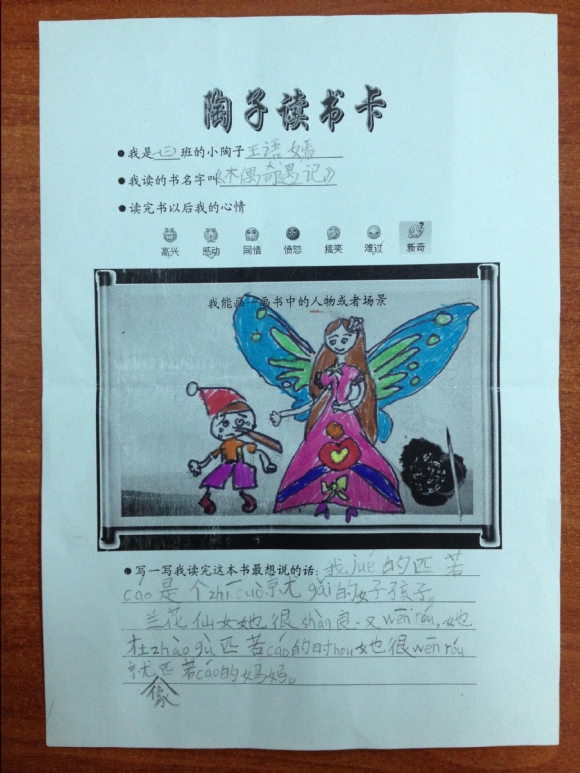 陶子读书卡
●我是(三)班的小陶子王语嫣
●我读的书名字叫《木偶奇遇记》
●读完书以后我的心情
高兴 感动 同情 愤怒 搞笑 难过 新奇
我能画一画书中的人物或者场景
●写一写我读完这本书最想说的话：我jué的匹若
cáo是个zhī cuò就gǎi的好孩子。
兰花仙女她很shàn良、又wēn róu,她
在zhào gù匹若cáo的时hou她也很wēn róu
就像匹若cáo的妈妈。